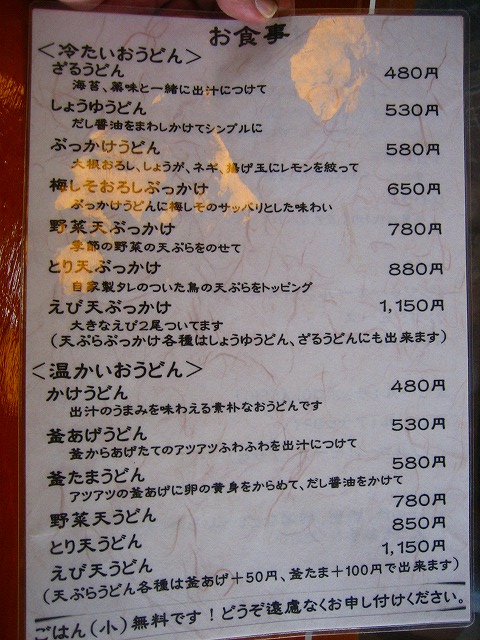 お食事
＜冷たいおうどん＞
ざるうどん 480円
海苔、薬味と一緒に出汁につけて
しょうゆうどん 530円
だし醤油をまわしかけてシンプルに
ぶっかけうどん 580円
大根おろし、しょうが、ネギ、揚げ玉にレモンを絞って
梅しそおろしぶっかけ 650円
ぶっかけうどんに梅しそのサッパリとした味わい
野菜天ぶっかけ 780円
季節の野菜の天ぷらをのせて
とり天ぶっかけ 880円
自家製タレのついた鳥の天ぷらをトッピング
えび天ぶっかけ 1,150円
大きなえび2尾ついてます
（天ぷらぶっかけ各種はしょうゆうどん、ざるうどんにも出来ます）
＜温かいおうどん＞
かけうどん 480円
出汁のうまみを味わえる素朴なおうどんです
釜あげうどん 530円
釜からあげたてのアツアツふわふわを出汁につけて
釜たまうどん 580円
アツアツの釜あげに卵の黄身をからめて、だし醤油をかけて
野菜天うどん 780円
とり天うどん 850円
えび天うどん 1,150円
（天ぷらうどん各種は釜あげ＋50円、釜たま＋100円で出来ます）
ごはん（小）無料です！どうぞ遠慮なくお申し付けください。